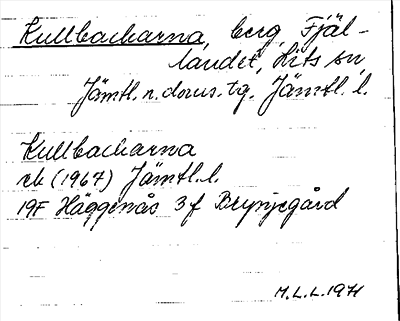 Kullbackarna, berg, Fjäl-
landet, Lits sn,
Jämtl. n. doms. tg. Jämtl. l.
Kullbackarna
ek (1967) Jämtl. l.
19F Häggenås 3f Brynjegård
M.L.L. 1971